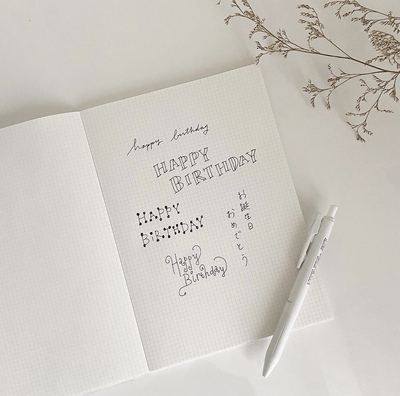 happy birthday
HAPPY
BIRTHDAY
HAPPY
BIRTHDAY
お誕生日
おめでとう
Happy
Birthday